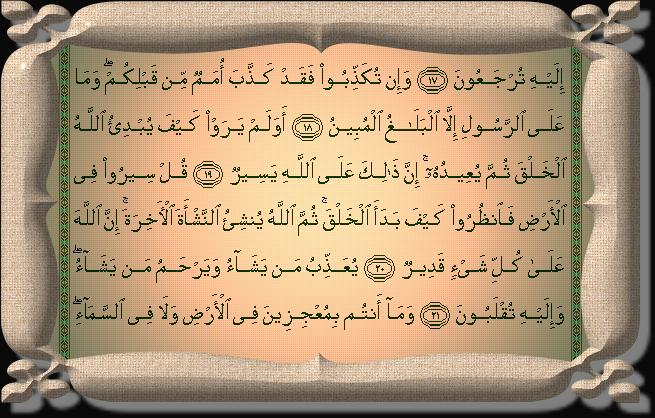 إِلَيْهِ تُرْجَعُونَ ﴿١٧﴾ وَإِن تُكَذِّبُوا۟ فَقَدْ كَذَّبَ أُمَمٌ مِّن قَبْلِكُمْ ۖ وَمَا
عَلَى ٱلرَّسُولِ إِلَّا ٱلْبَلَـٰغُ ٱلْمُبِينُ ﴿١٨﴾ أَوَلَمْ يَرَوْا۟ كَيْفَ يُبْدِئُ ٱللَّهُ
ٱلْخَلْقَ ثُمَّ يُعِيدُهُۥٓ ۚ إِنَّ ذَٰلِكَ عَلَى ٱللَّهِ يَسِيرٌ ﴿١٩﴾ قُلْ سِيرُوا۟ فِى
ٱلْأَرْضِ فَٱنظُرُوا۟ كَيْفَ بَدَأَ ٱلْخَلْقَ ۚ ثُمَّ ٱللَّهُ يُنشِئُ ٱلنَّشْأَةَ ٱلْـَٔاخِرَةَ ۚ إِنَّ ٱللَّهَ
عَلَىٰ كُلِّ شَىْءٍ قَدِيرٌ ﴿٢٠﴾ يُعَذِّبُ مَن يَشَآءُ وَيَرْحَمُ مَن يَشَآءُ ۖ
وَإِلَيْهِ تُقْلَبُونَ ﴿٢١﴾ وَمَآ أَنتُم بِمُعْجِزِينَ فِى ٱلْأَرْضِ وَلَا فِى ٱلسَّمَآءِ ۖ